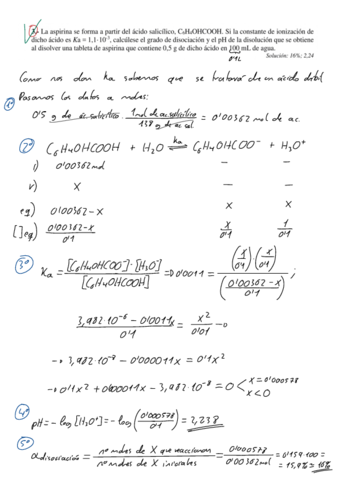 X- La aspirina se forma a partir del ácido salicílico, C₆H₅OHCOOH. Si la constante de ionización de
dicho ácido es Ka = 1,1·10⁻³, calcúlese el grado de disociación y el pH de la disolución que se obtiene
al disolver una tableta de aspirina que contiene 0,5 g de dicho ácido en 100 mL de agua.
0'1L
Solución: 16%; 2,24
Como nos dan Ka sabemos que se tratará de un ácido débil
1º Pasamos los datos a moles:
0'5 g de ác. salicílico · 1 mol de ac. salicílico / 138 g de ac. sal = 0'00362 mol de ac.
2º C₆H₄OHCOOH + H₂O ⇌ Ka C₆H₄OHCOO⁻ + H₃O⁺
i) 0'00362 mol — —
r) X — —
eq) 0'00362-x x x
[]eq) 0'00362-x / 0'1 x / 0'1 1 / 0'1
3º Ka = [C₆H₄OHCOO⁻]·[H₃O⁺] / [C₆H₄OHCOOH] => 0'0011 = (x/0'1)·(x/0'1) / (0'00362-x / 0'1) ;
3,982·10⁻⁶ - 0'0011x / 0'1 = x² / 0'01 →
→ 3,982·10⁻⁸ - 0'000011x = 0'1x²
→ 0'1x² + 0'000011x - 3,982·10⁻⁸ = 0 < x = 0'000578
x < 0
4º
pH = -log [H₃O⁺] = -log (0'000578 / 0'1) = 2,238
5º
α disociación = nº moles de X que reaccionan / nº moles de X iniciales = 0'000578 / 0'00362 mol = 0'159·100 =
= 15,9% ≈ 16%